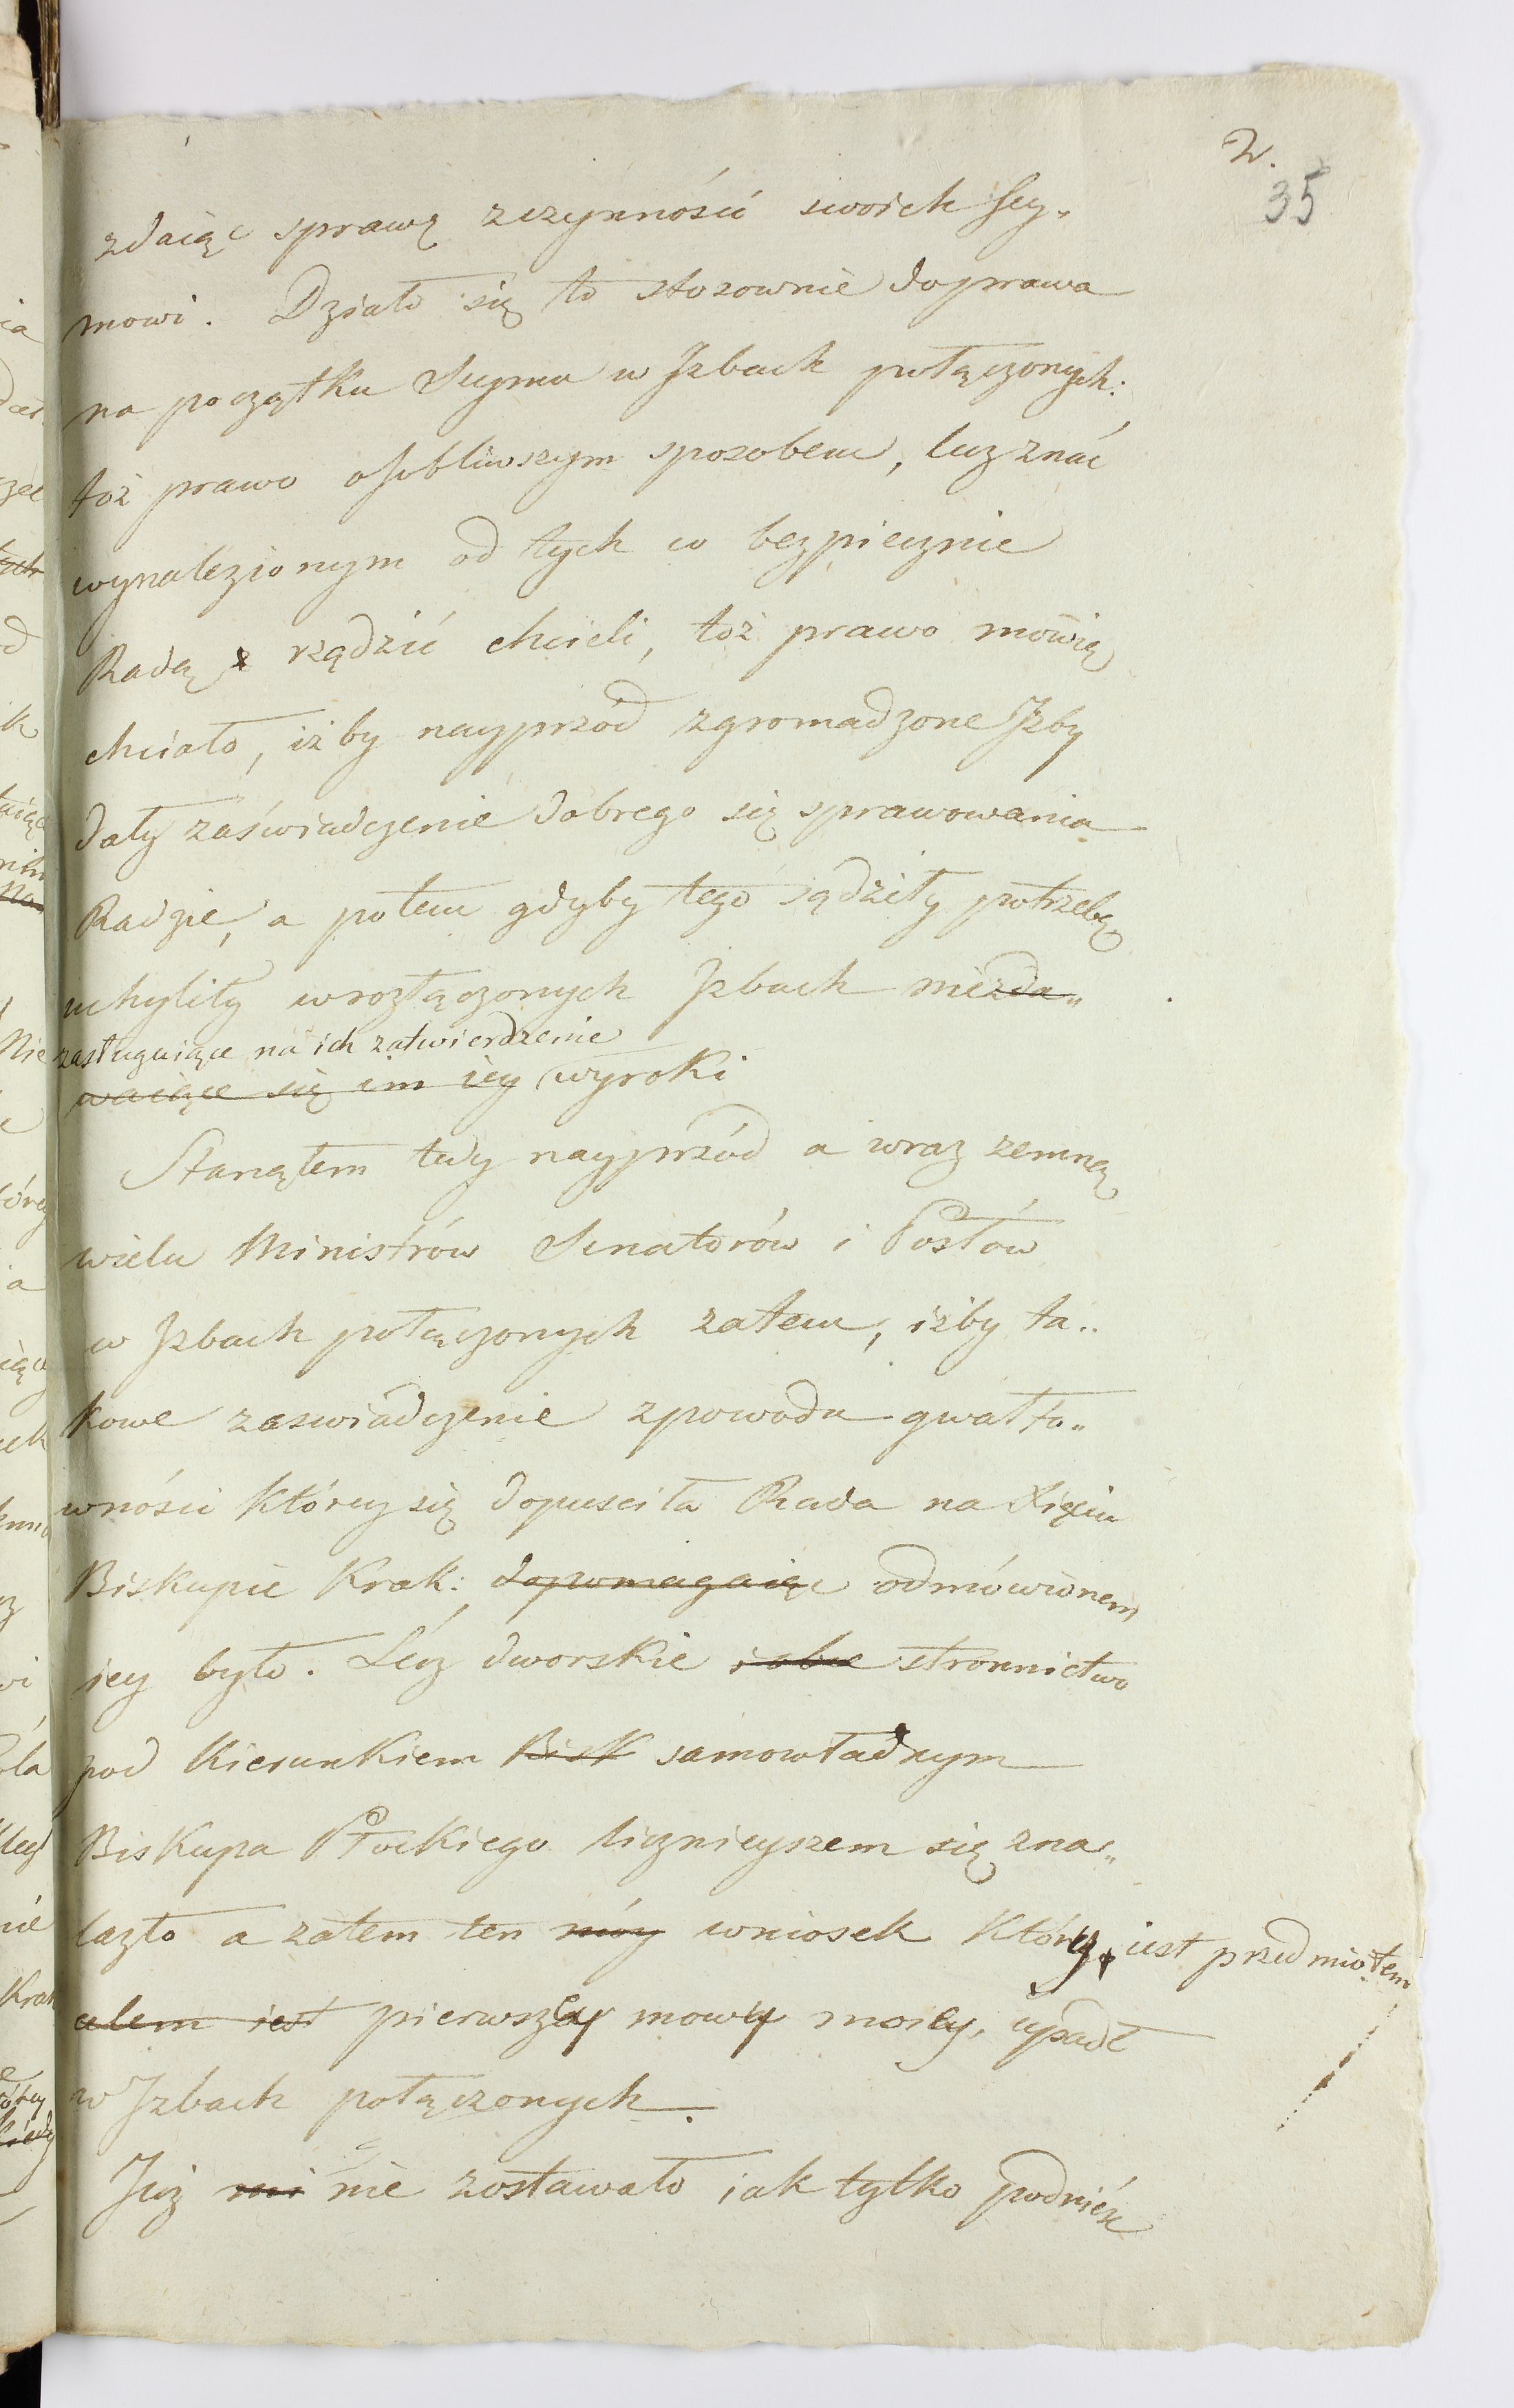 2.
35
zdaiąc sprawę zczynności swoich Sey„
mowi. Działo się to stosownie do prawa
na początku Seymu w Izbach połączonych:
toż prawo osobliwszym sposobem, lecz znać
wynalezionym od tych co bezpiecznie
Radą rządzić chcieli, toż prawo mówię
chciało, iżby nayprzód zgromadzone Izby
dały zaświadczenie dobrego się sprawowania
Radzie, a potem gdyby tego sądziły potrzebę
uchyliły w rozłączonych Izbach niezda„
zasługuiące na ich zatwierdzenie
waiące się im iey wyroki
Stanąłem tedy nayprzód a wraz zemną
wielu Ministrów Senatorów i Posłów
w Izbach połączonych zatem, iżby ta„
kowe zaswiadczenie zpowodu gwałto„
wności którey się dopusciła Rada na Xięciu
Biskupie Krak: dopomagaiąc odmówionem
iey było. Lecz dworskie i obce stronnictwo
pod kierunkiem Bisk samowładnym
Biskupa Płockiego licznieyszem się zna„
lazło a zatem ten móy wniosek który iest przedmiotem
celem iest pierwszey mowy moiey, upadł
w Izbach połączonych.
Już mi nie zostawało iak tylko podnieść